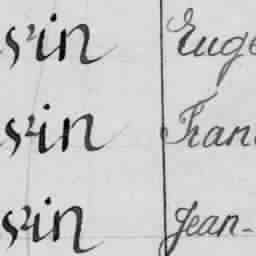 sin Euge
sin Fran
sin Jean-